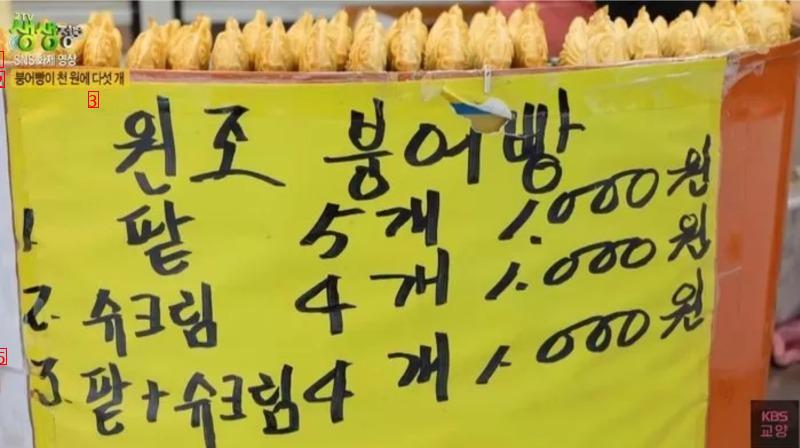 2TV
생생정보
SNS 화제 영상
붕어빵이 천 원에 다섯 개
3
5
원조 붕어빵
1. 팥 5개 1.000원
2. 슈크림 4개 1.000원
3. 팥+슈크림 4개 1.000원
KBS
교양